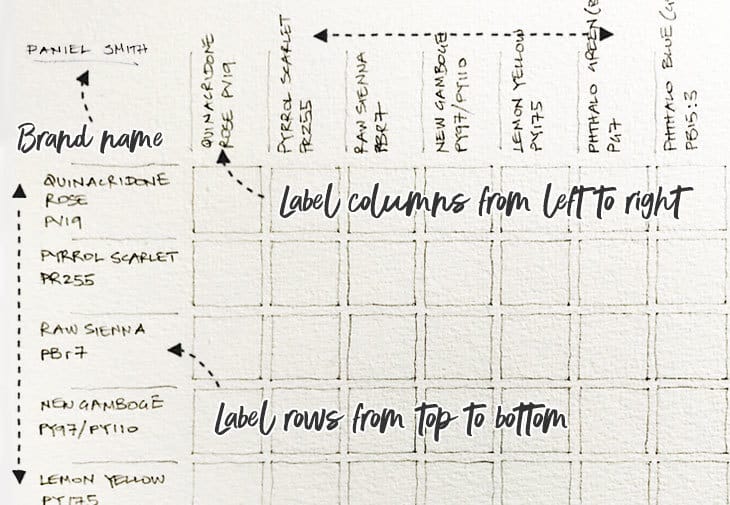 DANIEL SMITH
Brand name
QUINACRIDONE
ROSE PV19
PYRROL SCARLET
PR255
RAW SIENNA
PBR7
NEW GAMBOGE
PY97/PY110
LEMON YELLOW
PY175
PHTHALO GREEN (B
PG7
PHTHALO BLUE (G
PB15:3
Label columns from left to right
QUINACRIDONE
ROSE
PV19
PYRROL SCARLET
PR255
RAW SIENNA
PBr7
Label rows from top to bottom
NEW GAMBOGE
PY97/PY110
LEMON YELLOW
PY175